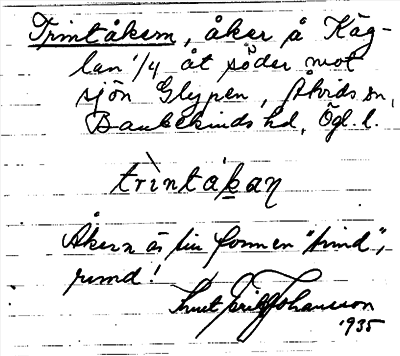 Trintåkern, åker å Käg-
lan 1/4 åt söder mot
sjön Glypen, Åtvids sn,
Bankekinds hd, Ögl. l.
trìntåkaṇ
Åkern är till formen "trind",
rund!
Knut Erik Johansson
1935